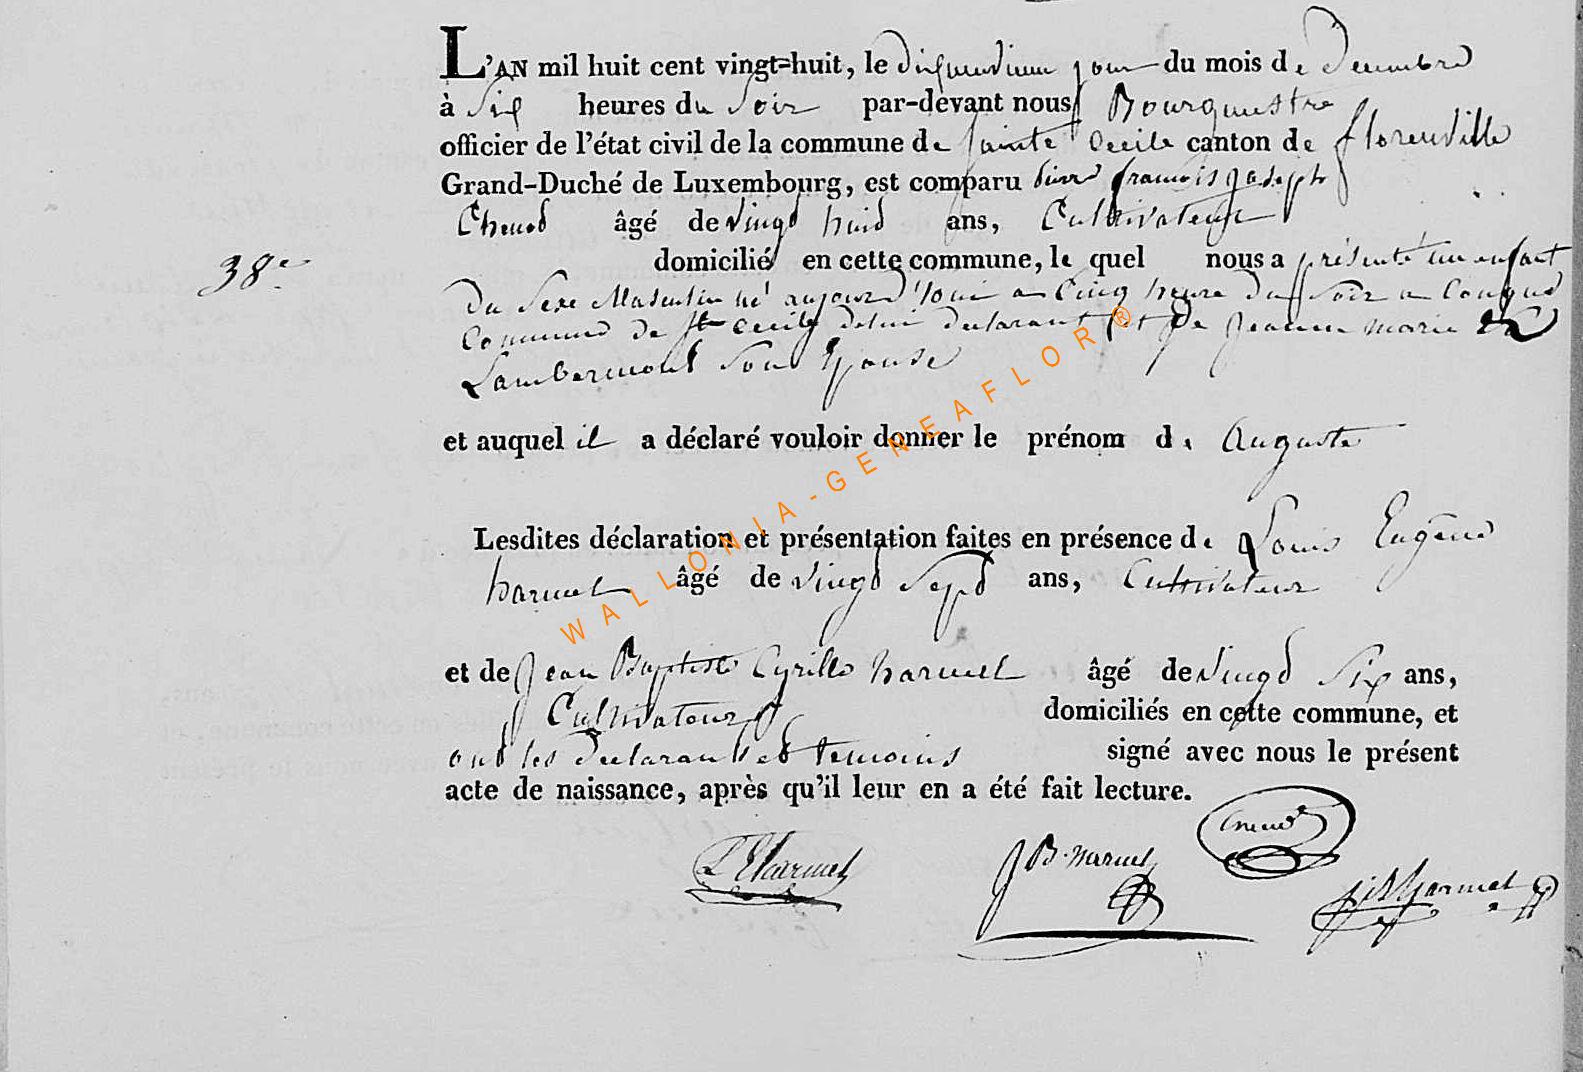 L'AN mil huit cent vingt-huit, le jour du mois de decembre
à Six heures du Soir par-devant nous Bourguestre
officier de l'état civil de la commune de Sainte Cecile canton de florenville
Grand-Duché de Luxembourg, est comparu françois Joseph
âgé de vingd huid ans, Cultivateur
38e domicilié en cette commune, le quel nous a présenté un enfant
Du Sexe Masculin né aujourd'houi a Cinq heure du Soir a
Commune de Ste Cecile delui declarant et de Jeanne marie
Lambermont Son Epouse
et auquel il a déclaré vouloir donner le prénom de Auguste
Lesdites déclaration et présentation faites en présence de Louis Eugène
harmel âgé de vingd Sepd ans, Cultivateur
et de Jean Baptiste Cyrille harmel âgé de vingd Six ans,
Cultivateur domiciliés en cette commune, et
ond les declarant et temoins signé avec nous le présent
acte de naissance, après qu'il leur en a été fait lecture.
L E harmel J B. harmel
WALLONIA-GENEAFLOR®